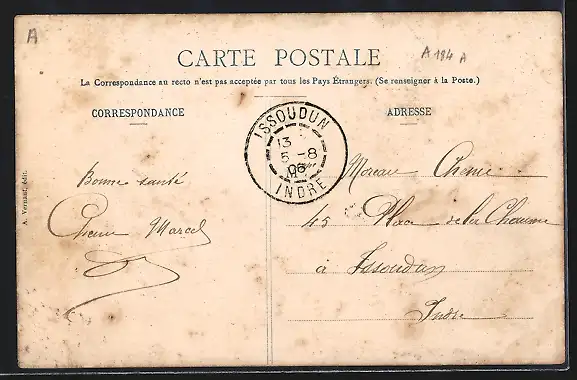 A
A 184 A
CARTE POSTALE
La Correspondance au recto n'est pas acceptée par tous les Pays Étrangers. (Se renseigner à la Poste.)
CORRESPONDANCE
ADRESSE
ISSOUDUN
13
5 -8
06
INDRE
A. Vernant, édit.
Bonne santé
Marcel
Moreau
45 Place de la Chaume
à Issoudun
Indre